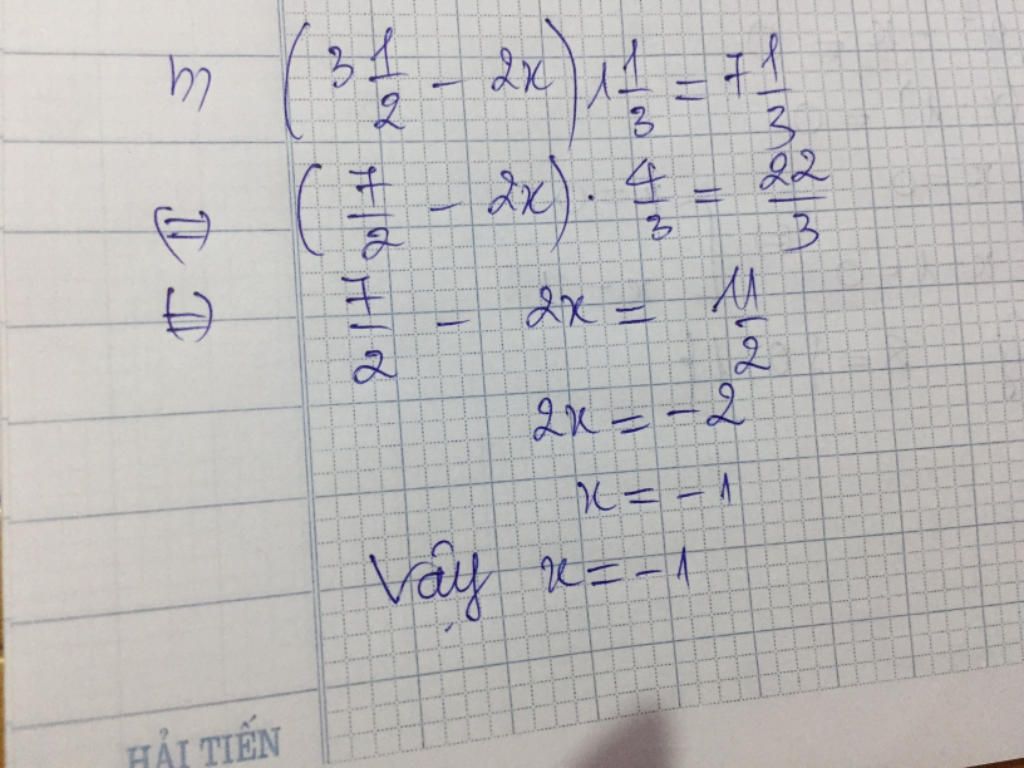 (3 1/2 - 2x) 1 1/3 = 7 1/3
(=) (7/2 - 2x) . 4/3 = 22/3
(=) 7/2 - 2x = 11/2
2x = -2
x = -1
Vậy x = -1
HẢI TIẾN